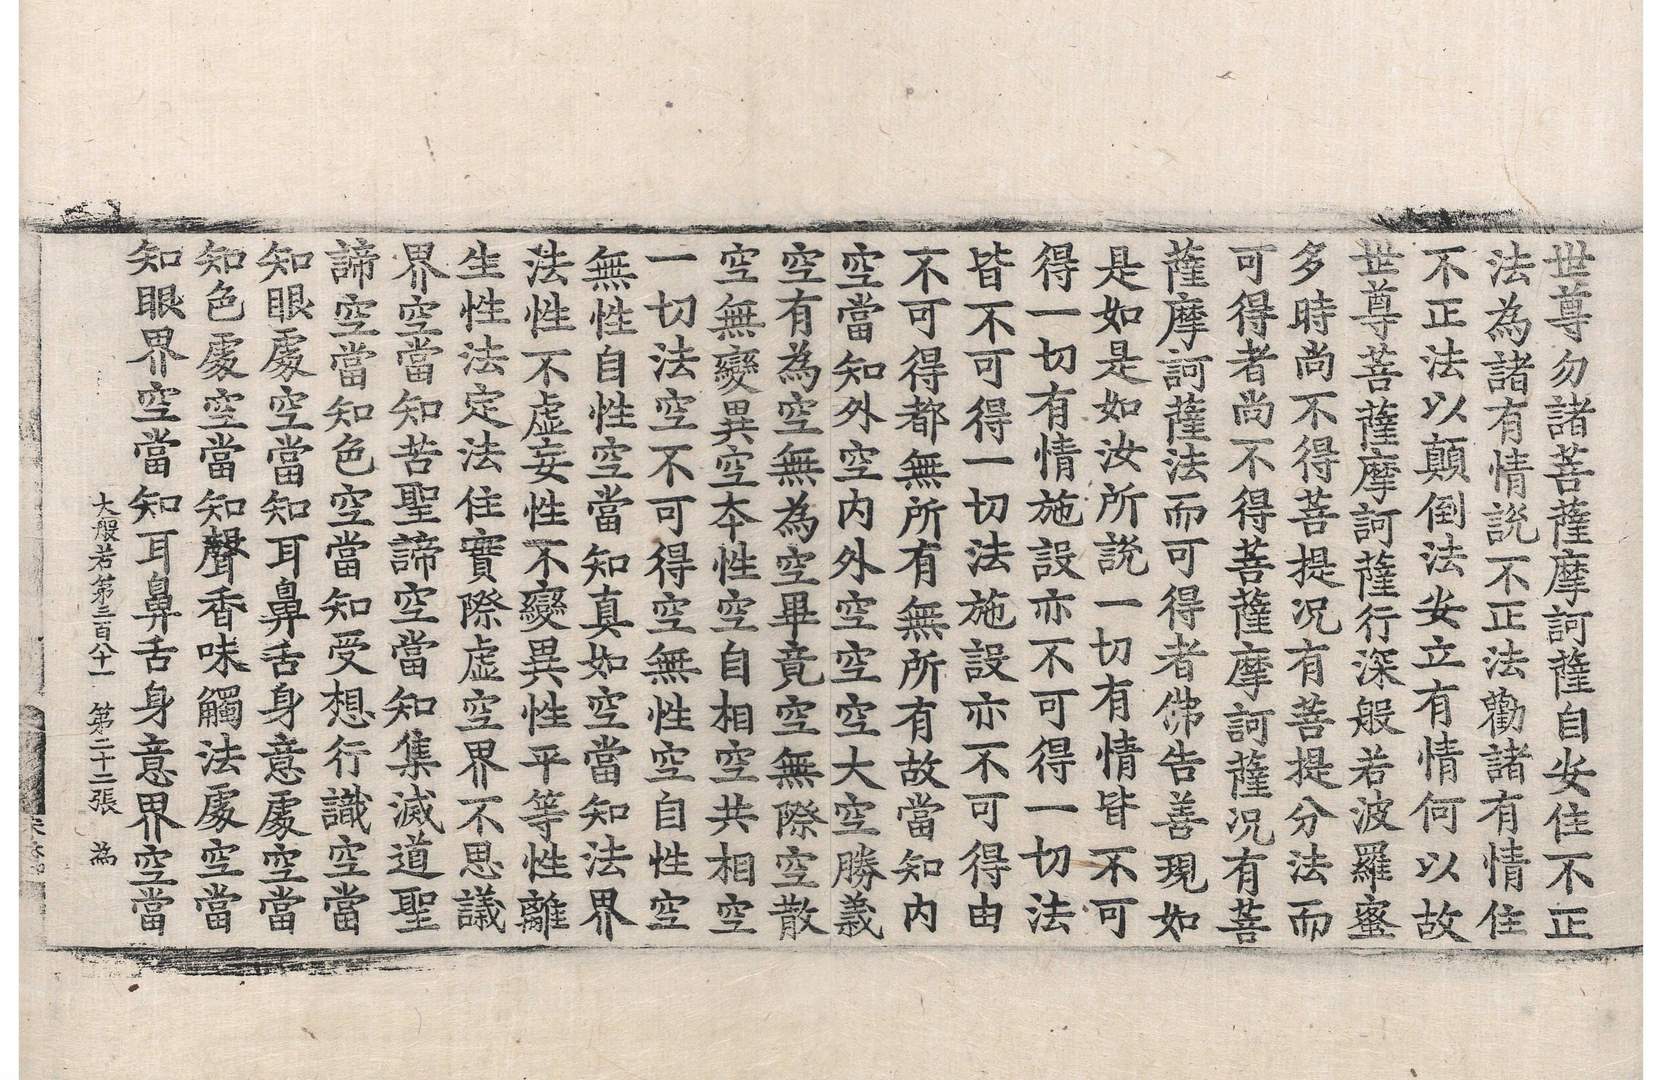 世尊勿諸菩薩摩訶薩自安住不正
法為諸有情說不正法勸諸有情住
不正法以顛倒法安立有情何以故
世尊菩薩摩訶薩行深般若波羅蜜
多時尚不得菩提况有菩提分法而
可得者尚不得菩薩摩訶薩况有菩
薩摩訶薩法而可得者佛告善現如
是如是如汝所說一切有情皆不可
得一切有情施設亦不可得一切法
皆不可得一切法施設亦不可得由
不可得都無所有無所有故當知内
空當知外空内外空空空大空勝義
空有為空無為空畢竟空無際空散
空無變異空本性空自相空共相空
一切法空不可得空無性空自性空
無性自性空當知真如空當知法界
法性不虛妄性不變異性平等性離
生性法定法住實際虛空界不思議
界空當知苦聖諦空當知集滅道聖
諦空當知色空當知受想行識空當
知眼處空當知耳鼻舌身意處空當
知色處空當知聲香味觸法處空當
知眼界空當知耳鼻舌身意界空當
大般若第三百八十一 第二十二張 為